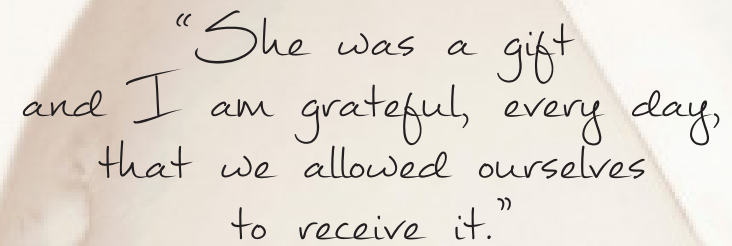 “She was a gift
and I am grateful, every day,
that we allowed ourselves
to receive it.”